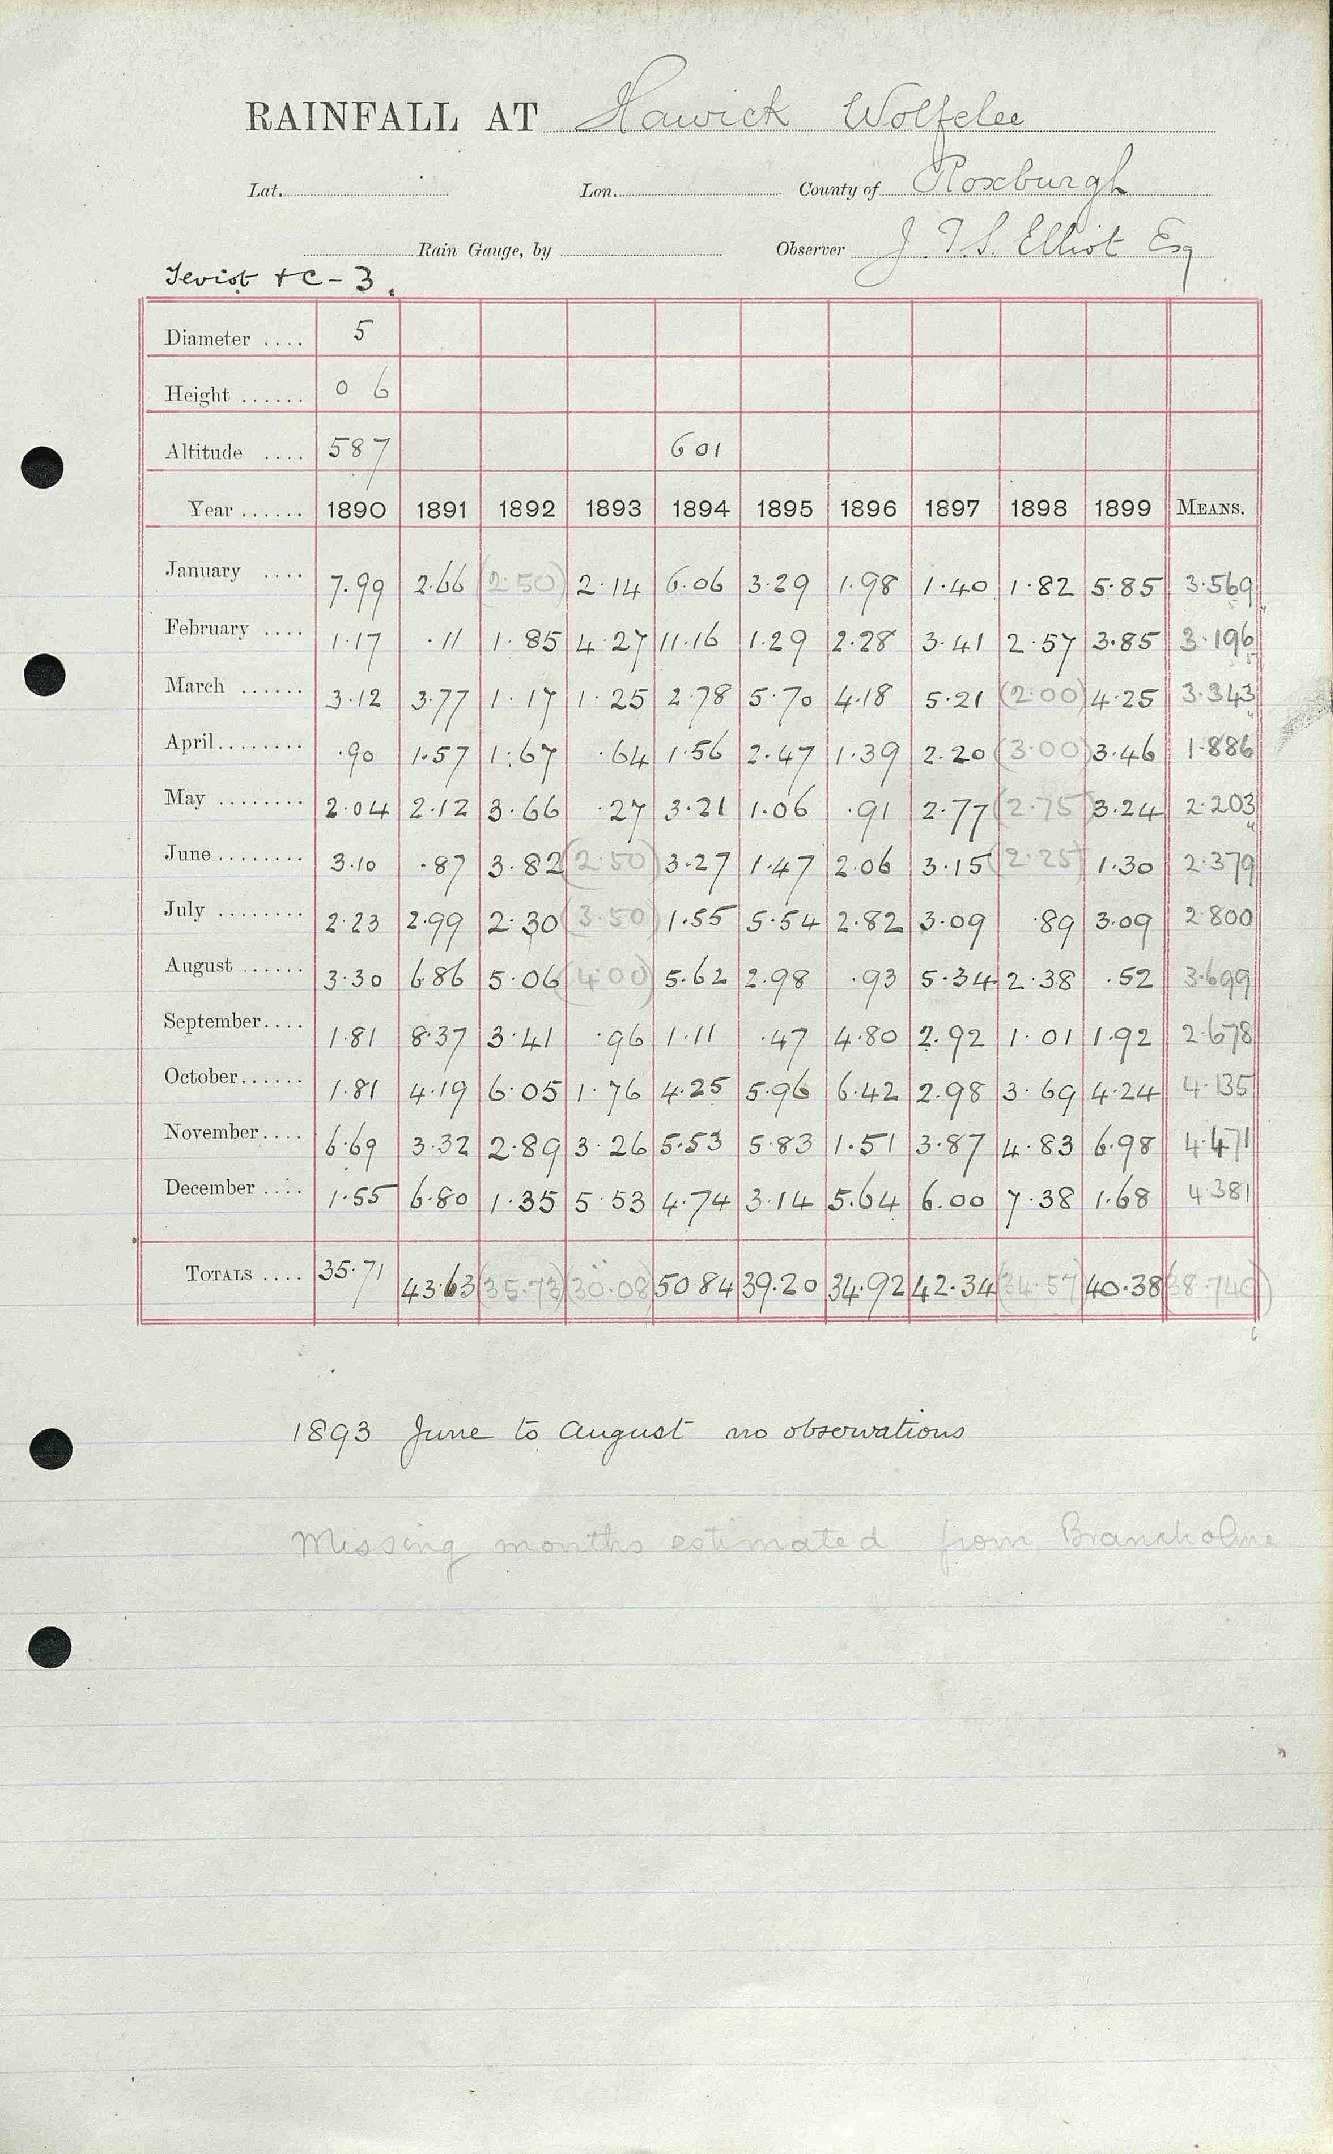 RAINFALL AT Hawick Wolfelee
Lat. Lon. County of Roxburgh
Rain Gauge, by Observer J. T. S. Elliot Esq
Teviot +c - 3.
Diameter .... 5
Height ...... 0 6
Altitude .... 587 601
Year ...... 1890 1891 1892 1893 1894 1895 1896 1897 1898 1899 MEANS.
January .... 7.99 2.66 (2.50) 2.14 6.06 3.29 1.98 1.40 1.82 5.85 3.569
February .... 1.17 .11 1.85 4.27 11.16 1.29 2.28 3.41 2.57 3.85 3.196
March ...... 3.12 3.77 1.17 1.25 2.78 5.70 4.18 5.21 (2.00) 4.25 3.343
April ........ .90 1.57 1.67 .64 1.56 2.47 1.39 2.20 (3.00) 3.46 1.886
May ........ 2.04 2.12 3.66 .27 3.21 1.06 .91 2.77 (2.75) 3.24 2.203
June ........ 3.10 .87 3.82 (2.50) 3.27 1.47 2.06 3.15 (2.25) 1.30 2.379
July ........ 2.23 2.99 2.30 (3.50) 1.55 5.54 2.82 3.09 .89 3.09 2.800
August ...... 3.30 6.86 5.06 (4.00) 5.62 2.98 .93 5.34 2.38 .52 3.699
September.... 1.81 8.37 3.41 .96 1.11 .47 4.80 2.92 1.01 1.92 2.678
October...... 1.81 4.19 6.05 1.76 4.25 5.96 6.42 2.98 3.69 4.24 4.135
November.... 6.69 3.32 2.89 3.26 5.53 5.83 1.51 3.87 4.83 6.98 4.471
December .... 1.55 6.80 1.35 5.53 4.74 3.14 5.64 6.00 7.38 1.68 4.381
TOTALS .... 35.71 43.63 (35.73) (30.08) 50.84 39.20 34.92 42.34 (34.57) 40.38 (38.740)
1893 June to August no observations
Missing months estimated from Branxholme